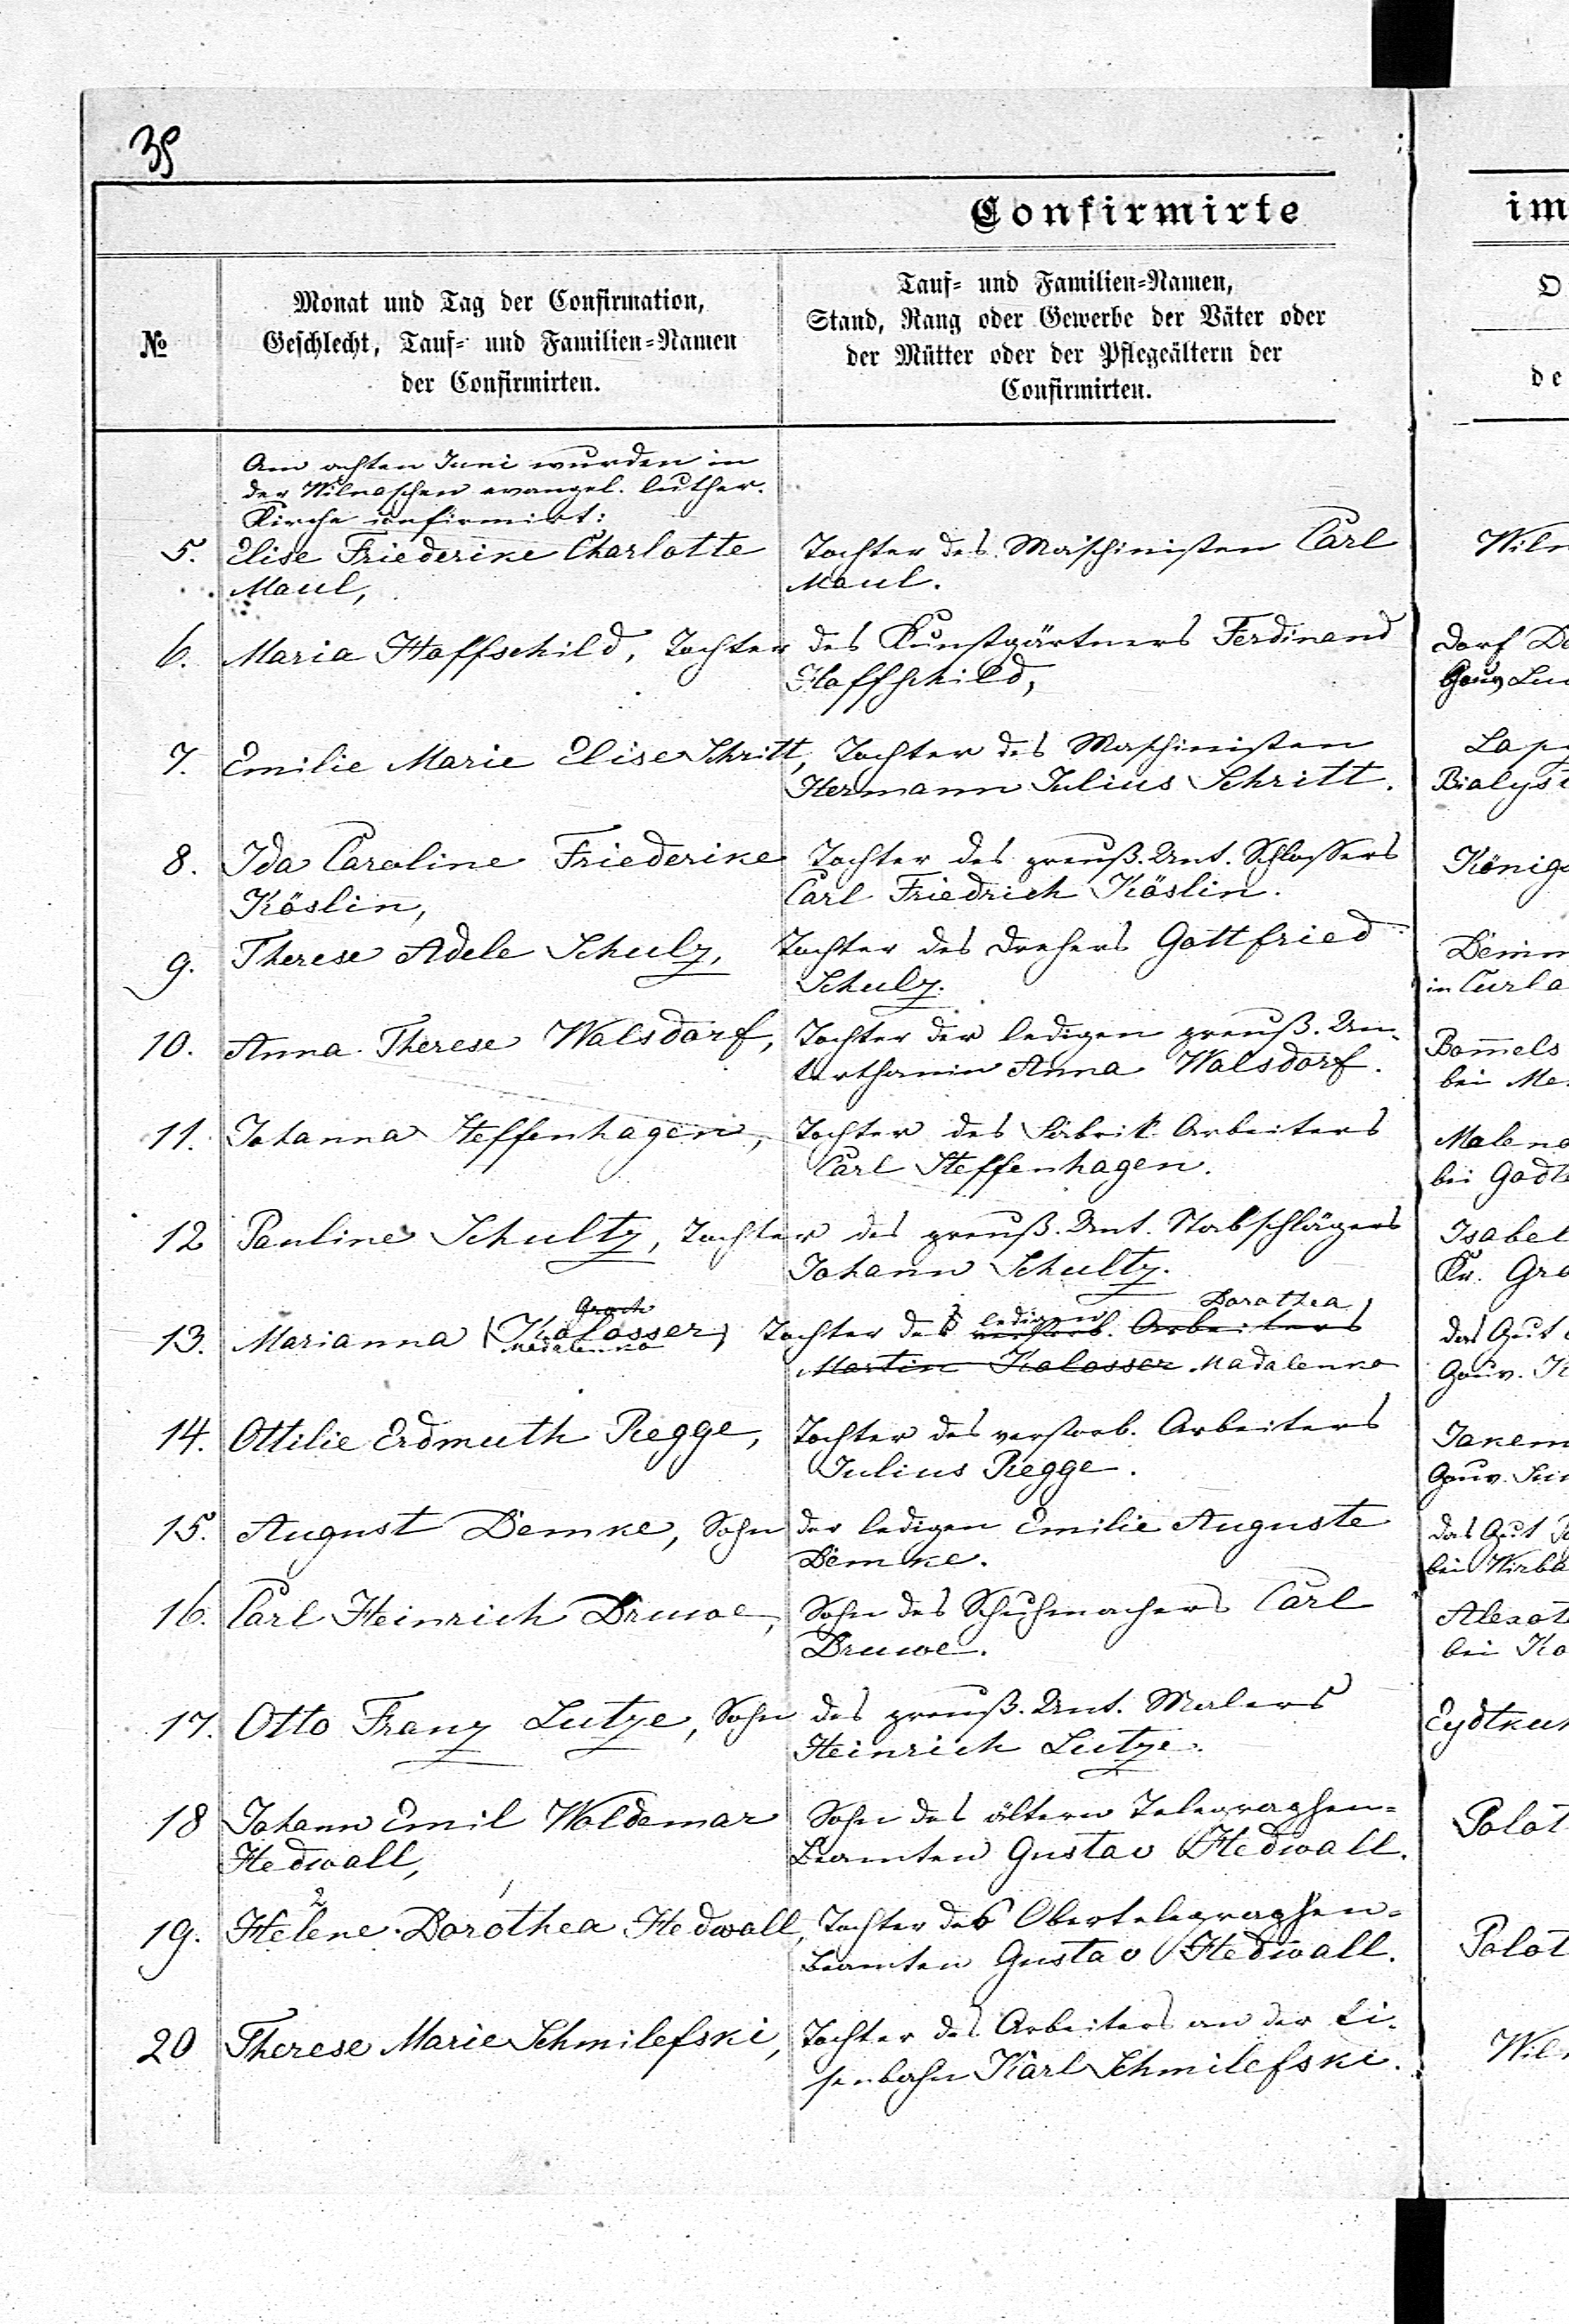 35
Confirmirte
im
№
Monat und Tag der Confirmation,
Geschlecht, Tauf- und Familien-Namen
der Confirmirten.
Tauf- und Familien-Namen,
Stand, Rang oder Gewerbe der Väter oder
der Mütter oder der Pflegeältern der
Confirmirten.
O
de
Am achten Juni wurden in
der Wilnaschen evangel. luther.
Kirche confirmirt:
5. Elise Friederike Charlotte Tochter des Maschinisten Carl Wiln
Maul, Maul.
6. Maria Hoffschild, Tochter des Kunstgärtners Ferdinand Dorf
Hoffschild, Gouv
7. Emilie Marie Elise Schritt, Tochter des Maschinisten Lap
Hermann Julius Schritt. Bialyst
8. Ida Caroline Friederike Tochter des preuß. Unt. Schlossers Königs
Köslin, Carl Friedrich Köslin.
9. Therese Adele Schulz, Tochter des Drehers Gottfried
Schulz. in Curla
10. Anna Therese Walsdorf, Tochter der ledigen preuß. Un- Bom̅els
terthanin Anna Walsdorf. bei Me
11. Johanna Steffenhagen, Tochter des Fabrik Arbeiters Maleno
Carl Steffenhagen. bei Godl
12 Pauline Schultz, Tochter des preuß. Unt. Stabschlägers Isabel
Johann Schultz. Kr. Gro
Groch ledigen Dorothea
13. Marianna (Kolosser) Tochter des verstorb. Arbeiters das Gut
Madalenka Martin Kolosser Madalenka Gouv. K
14. Ottilie Erdmuth Regge, Tochter des verstorb. Arbeiters Janem
Julius Regge. Gouv.
15. August Demke, Sohn der ledigen Emilie Auguste das Gut
Demke. bei Wirba
16. Carl Heinrich Druwe, Sohn des Schuhmachers Carl Alexot
Druwe. bei Ko
17. Otto Franz Lutze, Sohn des preuß. Unt. Malers Eydtkuh
Heinrich Lutze.
18 Johann Emil Woldemar Sohn des ältern Telegraphen- Polot
Hedwall, Beamten Gustav Hedwall.
2 1
19. Helene Dorothea Hedwall, Tochter des Obertelegraphen- Polot
Beamten Gustav Hedwall.
20 Therese Marie Schmilefski, Tochter des Arbeiters an der Ei- Wiln
senbahn Karl Schmilefski.